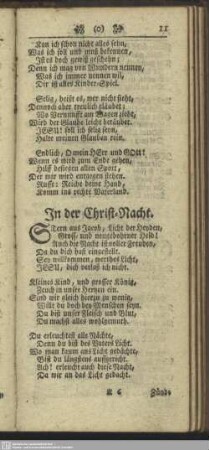 (o) 11
Kan ich schon nicht alles sehn,
Was ich soll und muß bekennen,
Ist es doch gewiß geschehn;
Denn ich mag von Wundern nennen,
Was ich immer nennen will,
Dir ist alles Kinder-Spiel.
Selig, heißt es, wer nicht sieht,
Dennoch aber treulich gläubet;
Wo Vernunfft am Wagen zieht,
Wird der Glaube leicht betäubet.
JESU! soll ich selig seyn,
Halte meinen Glauben rein.
Endlich, O mein HErr und GOtt!
Wenn es wird zum Ende gehen,
Hilff besiegen allen Spott,
Der mir wird entgegen stehen.
Ruffst: Reiche deine Hand,
Komm ins rechte Vaterland.
In der Christ-Nacht.
Stern aus Jacob, Licht der Heyden,
Groß- und neugebohrner Held!
Auch die Nacht ist voller Freuden,
Da du dich hast eingestellt.
Sey willkommen, werthes Licht,
JESU, dich verlaß ich nicht.
Kleines Kind, und grosser König,
Zeuch in unser Hertzen ein.
Sind wir gleich hierzu zu wenig,
Willt du doch bey Menschen seyn.
Du bist unser Fleisch und Blut,
Du machst alles wohlgemuth.
Du erleuchtest alle Nächte,
Denn du bist des Vaters Licht.
Wo man kaum ans Licht gedächte,
Bist du längstens aufgericht.
Ach! erleucht auch diese Nacht,
Da wir an das Licht gedacht.
A 6 Zünde